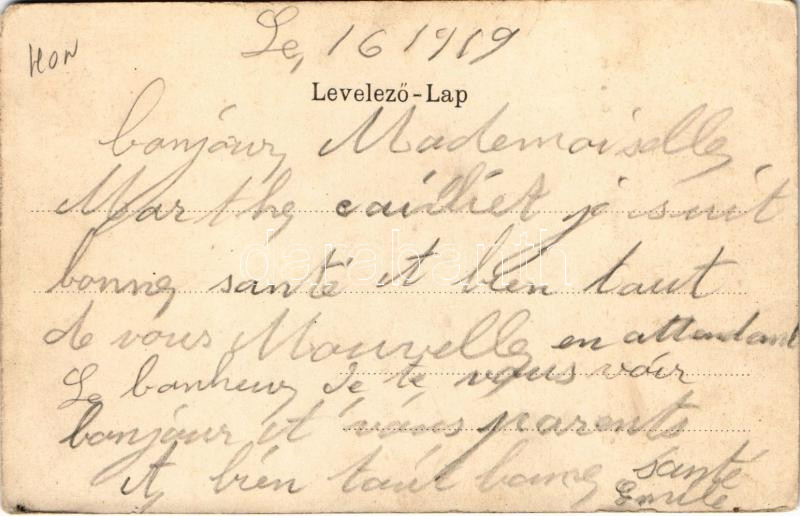 HON
Le, 16 1919
Levelező-Lap
bonjour Mademoiselle
Marthe cailliet j suit
bonne santé et bien taut
de vous Nouvelle en attendant
Le bonheur de te vous voir
bonjour et vous parents
et bien taut bonne santé
Emile
darabanth